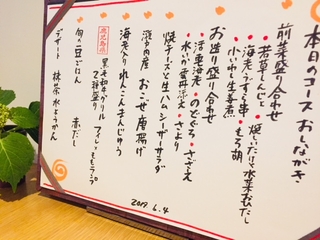 本日のコース おしながき
前菜盛り合わせ
若草とんどと・焼しいたけと水菜おだし
海老・うすら串・もろ胡
小いわし生姜煮
お造り盛り合わせ
活〆車海老・のどぐろ・さざえ
水いか・さより
焼チーズと生ハムシーザーサラダ
瀬戸内産 おこぜ唐揚げ
海老入りれんこんまんじゅう
鹿児島県
黒毛和牛グリル フィレ・ももランプ
2種盛り
旬の豆ごはん 赤だし
デザート 抹茶水ようかん
2019.6.4